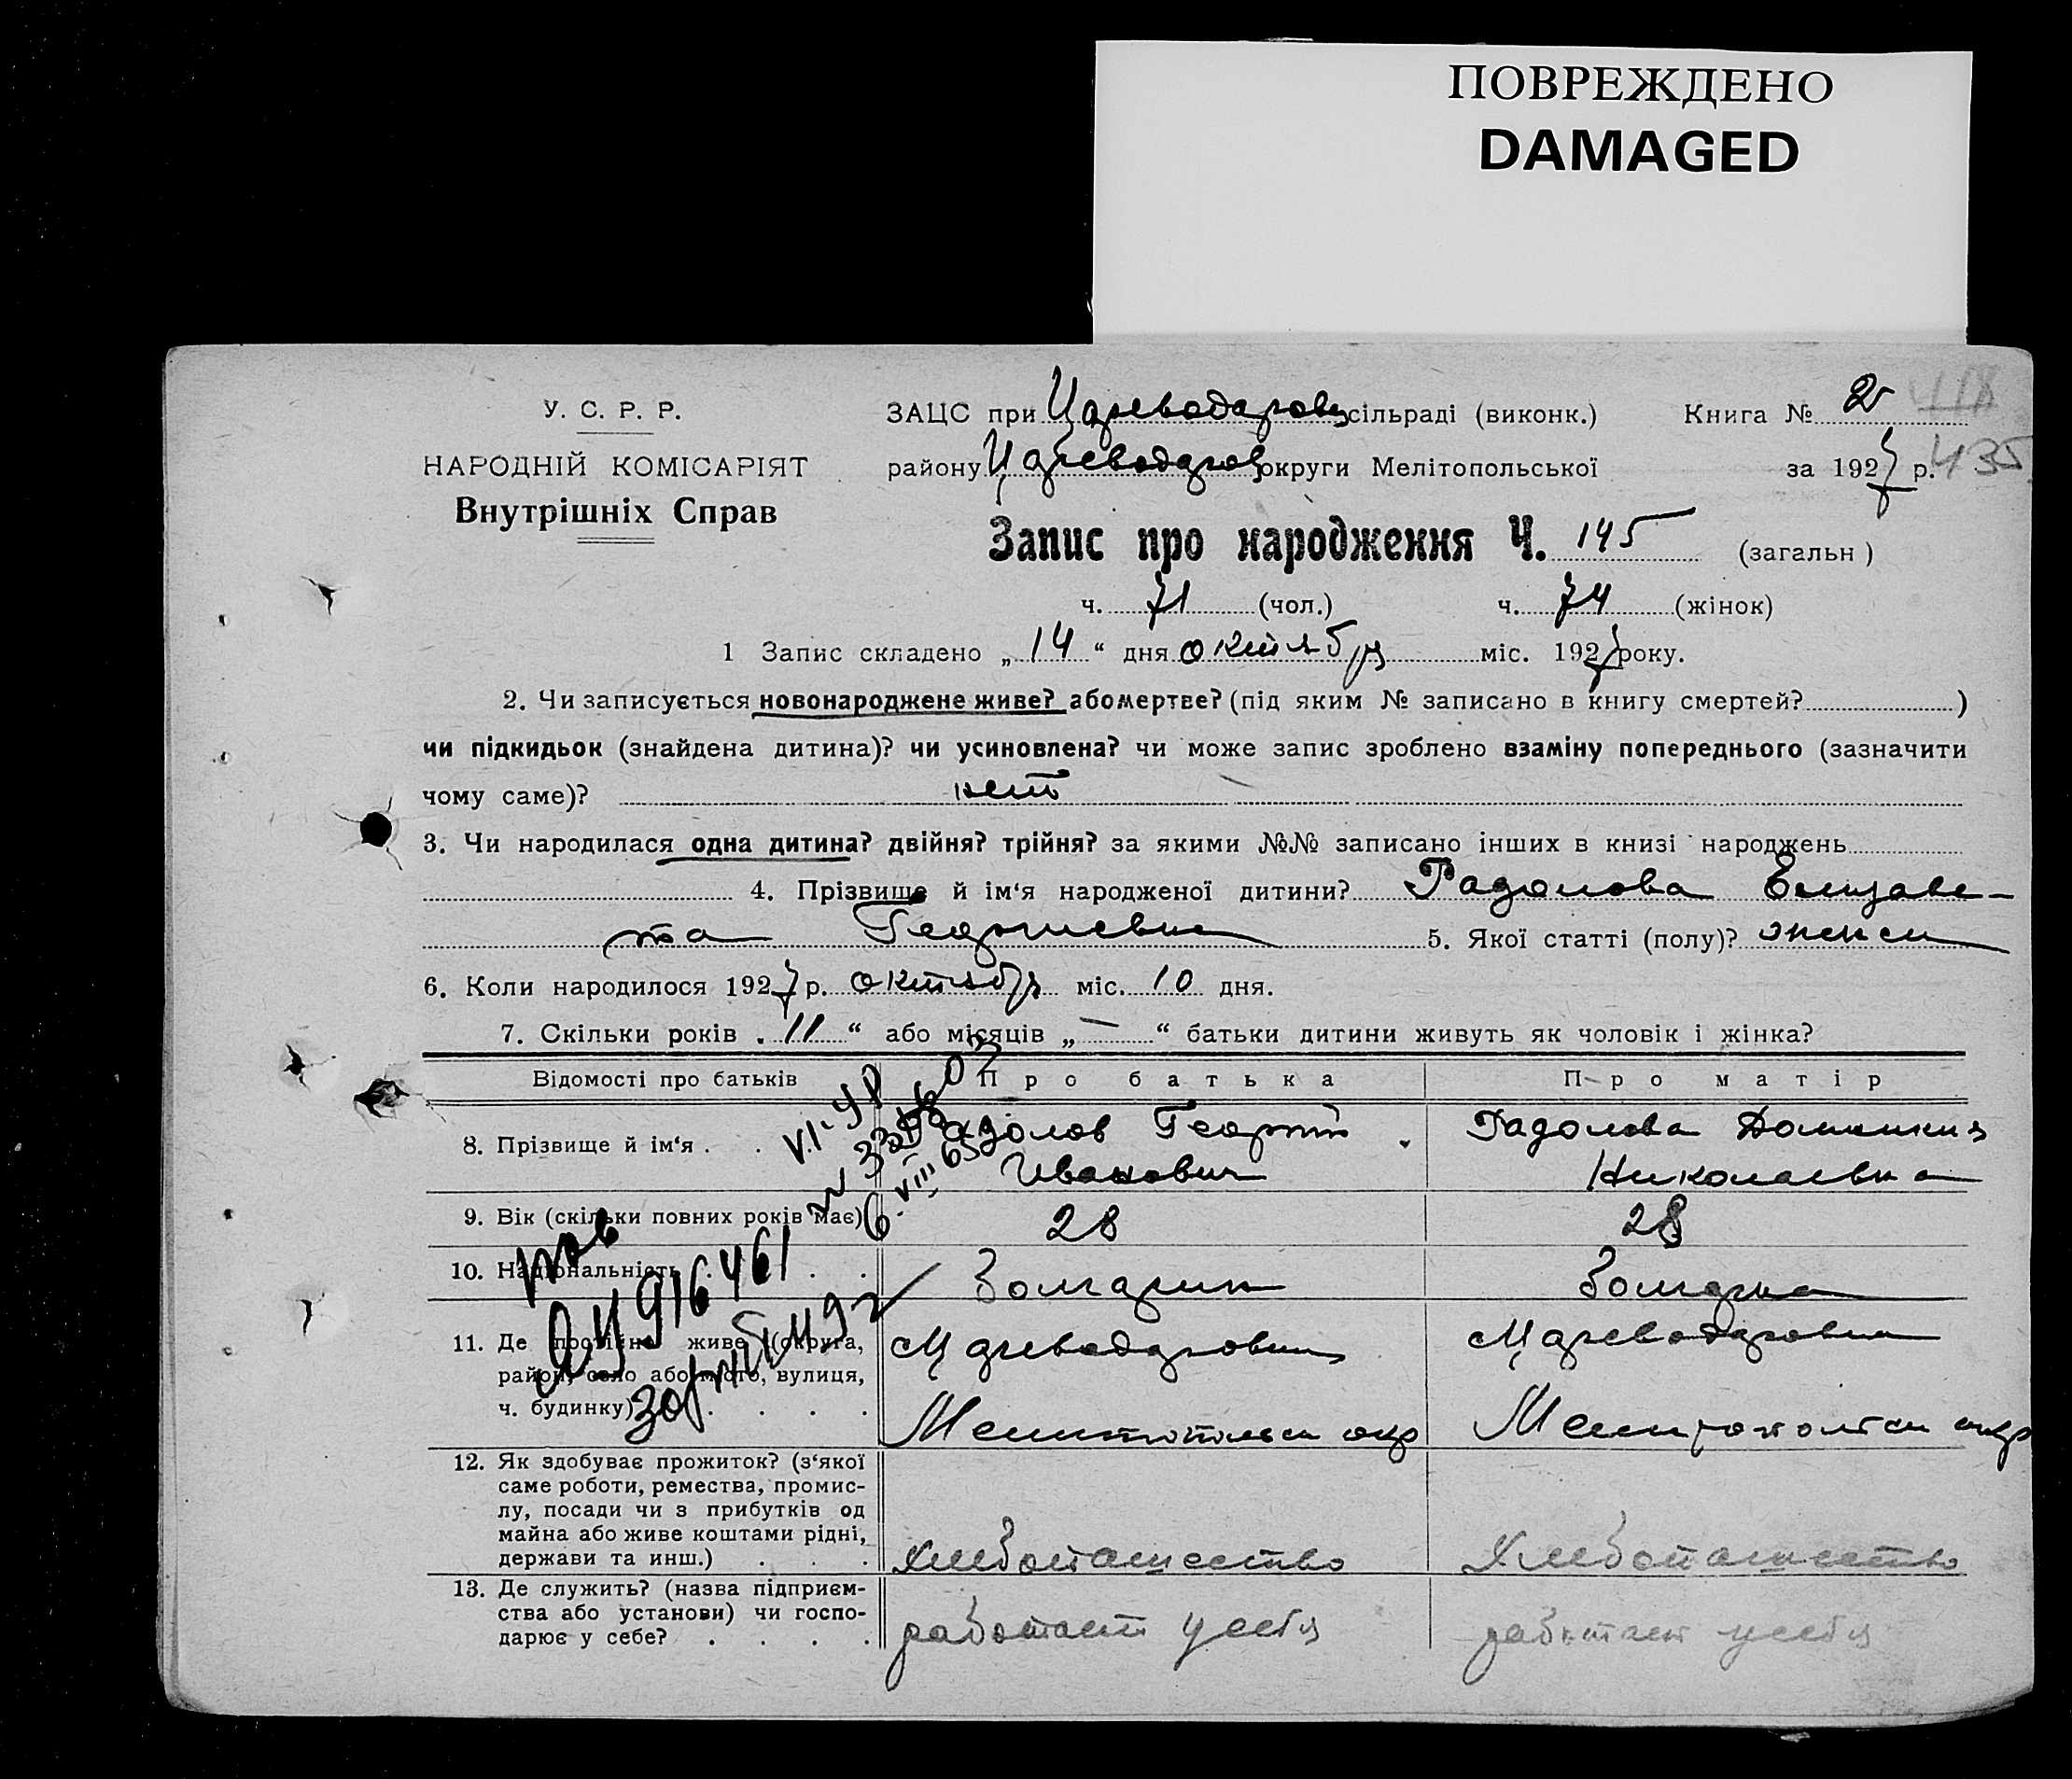 ПОВРЕЖДЕНО
DAMAGED
У. С. Р. Р.
НАРОДНІЙ КОМІСАРІЯТ
Внутрішніх Справ
ЗАЦС при Цареводаровц сільраді (виконк.) Книга № 2
району Цареводаров округи Мелітопольської за 1927 р. 435
Запис про народження Ч. 145 (загальн)
ч. 71 (чол.) ч. 74 (жінок)
1 Запис складено „ 14 “ дня октября міс. 1927 року.
2. Чи записується новонароджене живе? або мертве? (під яким № записано в книгу смертей? )
чи підкидьок (знайдена дитина)? чи усиновлена? чи може запис зроблено взаміну попереднього (зазначити
чому саме)? нет
3. Чи народилася одна дитина? двійня? трійня? за якими №№ записано інших в книзі народжень
4. Прізвище й ім‘я народженої дитини? Радолова Елизаве-
та Георгиевна 5. Якої статті (полу)? женск
6. Коли народилося 1927 р. октября міс. 10 дня.
7. Скільки років „ 11 “ або місяців „ — “ батьки дитини живуть як чоловік і жінка?
Відомості про батьків Про батька Про матір
8. Прізвище й ім‘я . . Радолов Георгий Иванович Радолова Домникия Николаевна
9. Вік (скільки повних років має) 28 28
10. Національність . . . Болгарин Болгарка
11. Де постійно живе (округа,
район, село або місто, вулиця,
ч. будинку) . . . .
Мелитопольск окр Мелитопольск окр
12. Як здобуває прожиток? (з‘якої
саме роботи, ремества, промис-
лу, посади чи з прибутків од
майна або живе коштами рідні,
держави та инш.) . . . Хлебопашество Хлебопашество
13. Де служить? (назва підприєм-
ства або установи) чи госпо-
дарює у себе? . . . . работает у себя работает у себя
916461